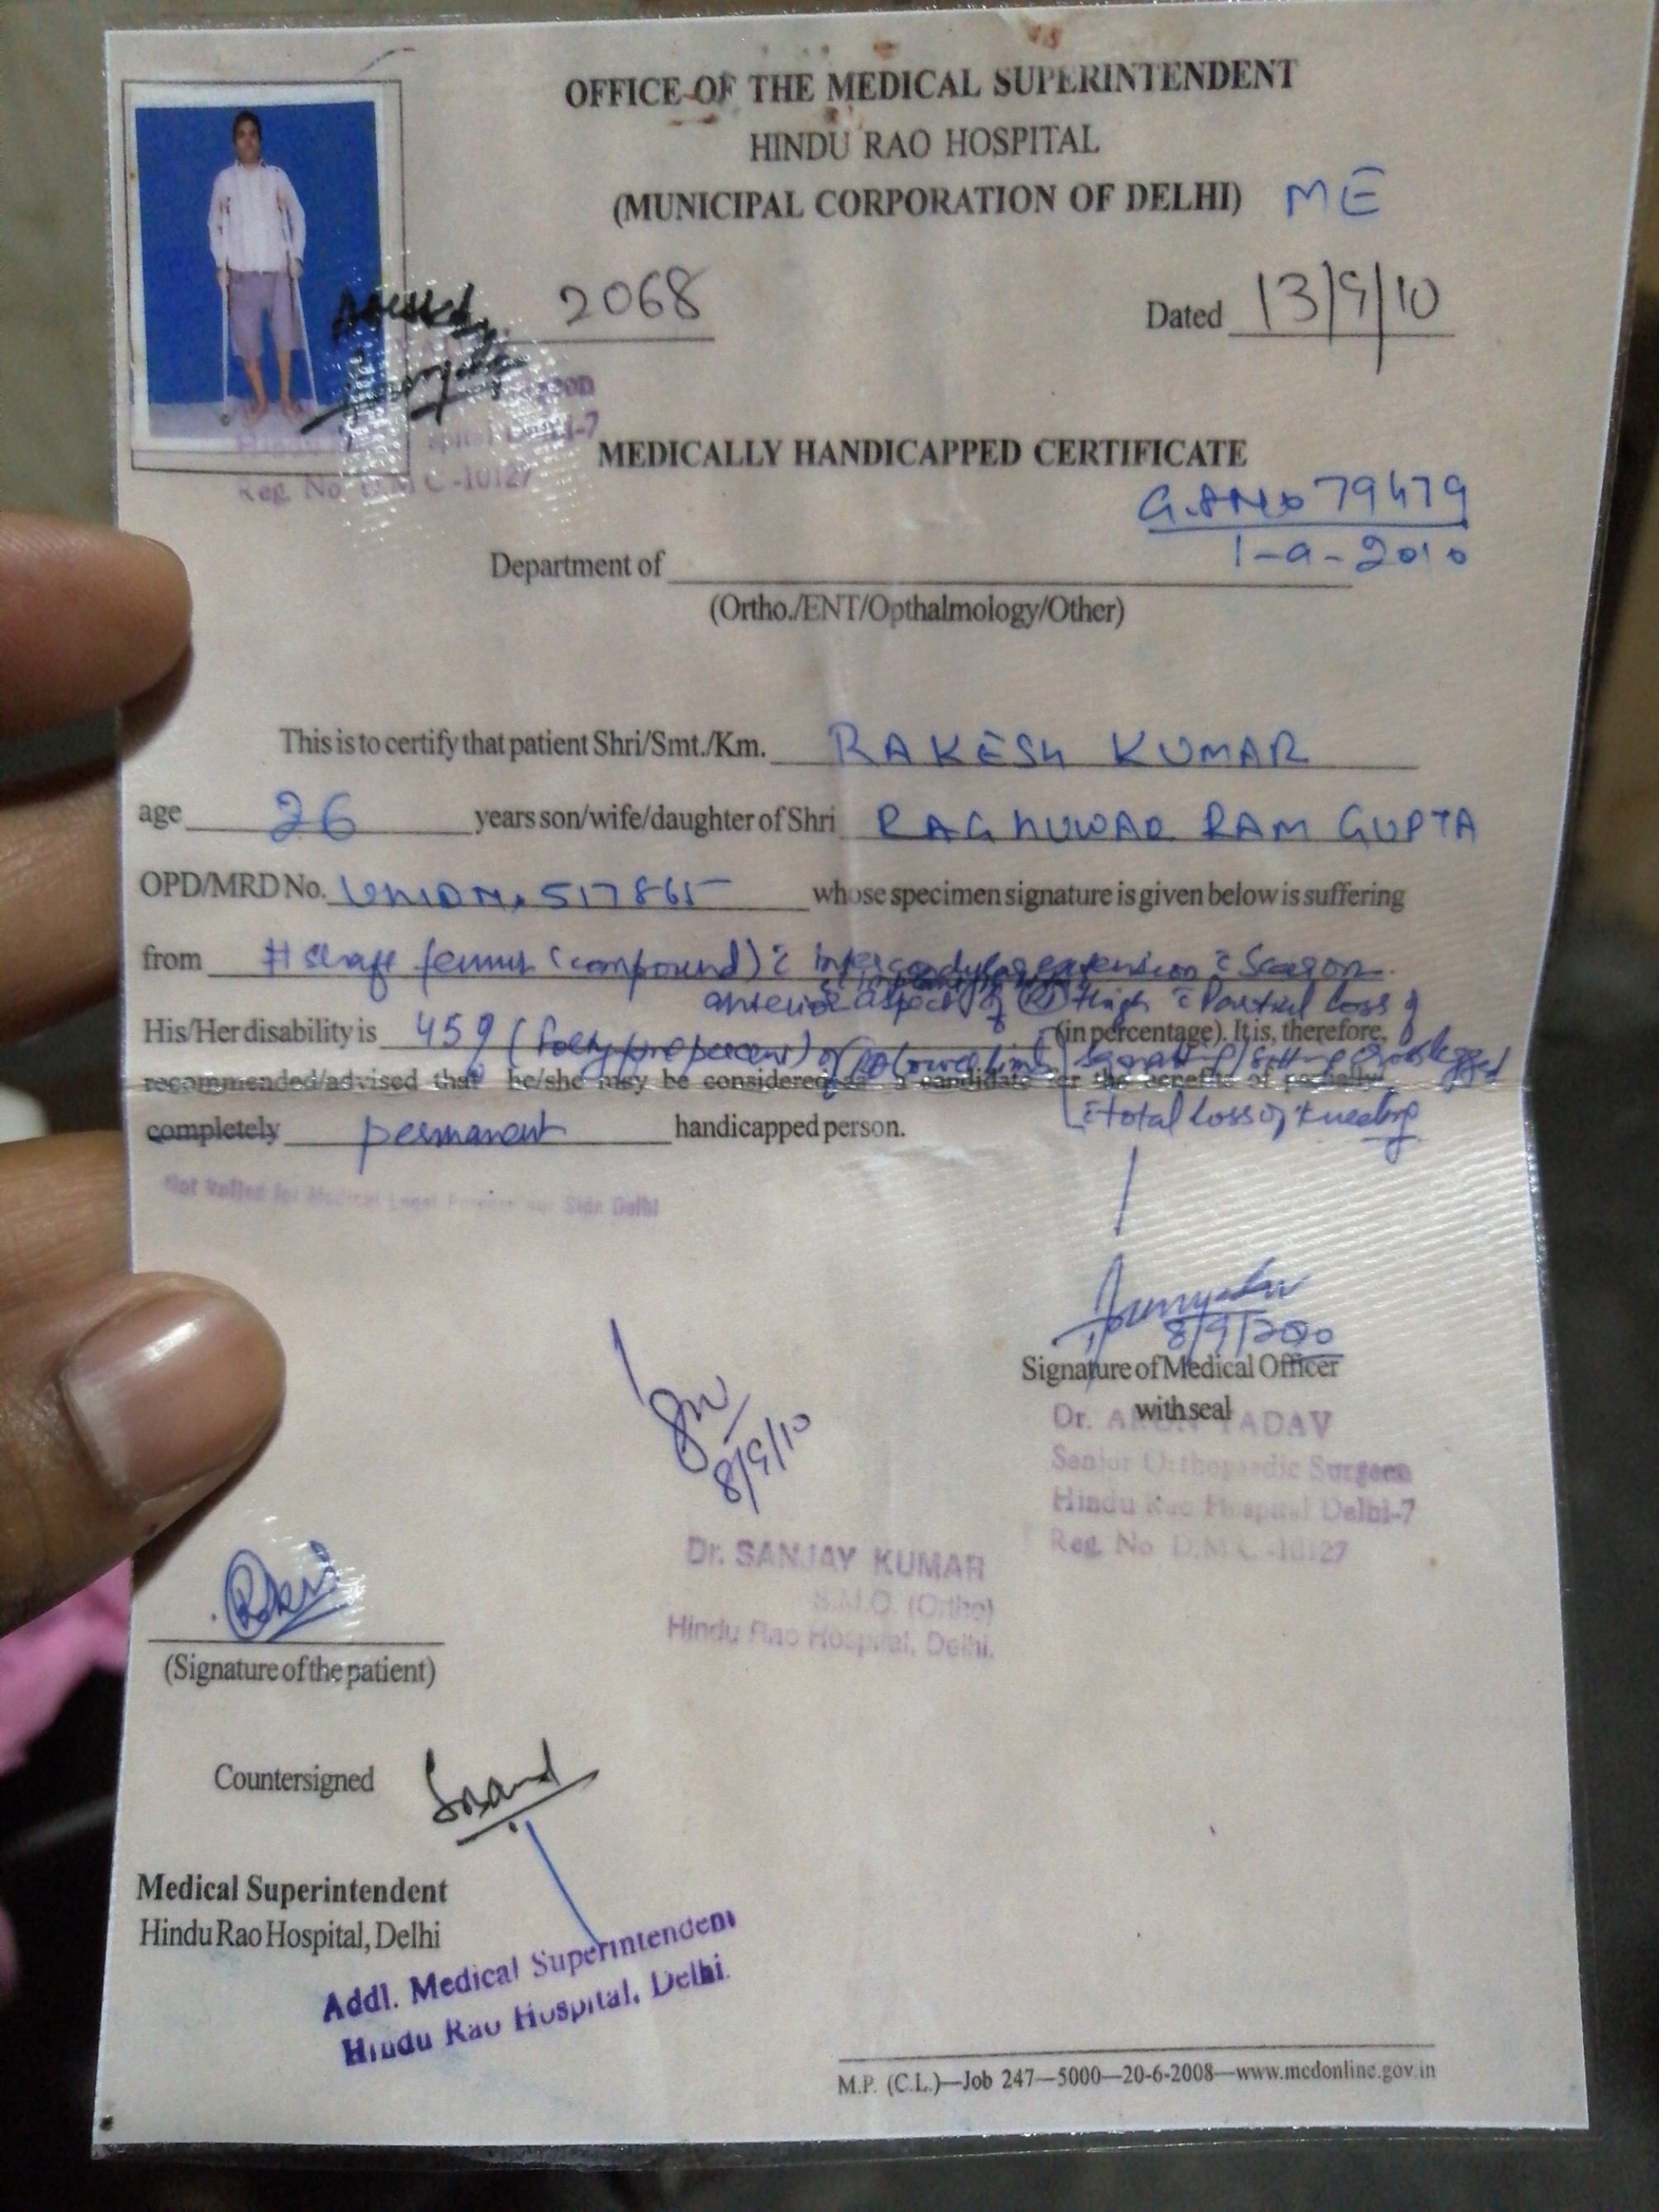 OFFICE OF THE MEDICAL SUPERINTENDENT
HINDU RAO HOSPITAL
(MUNICIPAL CORPORATION OF DELHI) ME
2068
Dated 13/9/10
Reg. No D.M.C-10127
MEDICALLY HANDICAPPED CERTIFICATE
79479
1-9-2010
Department of
(Ortho./ENT/Opthalmology/Other)
This is to certify that patient Shri/Smt./Km. RAKESH KUMAR
age 26 years son/wife/daughter of Shri RAGHUWAR RAM GUPTA
OPD/MRD No. 517865 whose specimen signature is given below is suffering
from # shaft femur (compound) c intercondylar extension c Scar on
anterior aspect of (R) thigh c Partial loss of
His/Her disability is 45% (forty five percent) of (R) lower limb (in percentage). It is, therefore,
squatting/sitting cross legged
recommended/advised that he/she may be considered as a candidate for the benefits of partially
c total loss of kneeling
completely permanent handicapped person.
Not for Medical Legal Side Delhi
8/9/2010
Signature of Medical Officer
with seal
Dr. ARUN YADAV
Senior Orthopaedic Surgeon
Hindu Rao Hospital Delhi-7
Reg. No D.M.C-10127
8/9/10
Dr. SANJAY KUMAR
(Ortho)
Hindu Rao Hospital, Delhi.
(Signature of the patient)
Countersigned
Medical Superintendent
Hindu Rao Hospital, Delhi
Addl. Medical Superintendent
Hindu Rao Hospital, Delhi.
M.P. (C.L.)—Job 247—5000—20-6-2008—www.mcdonline.gov.in